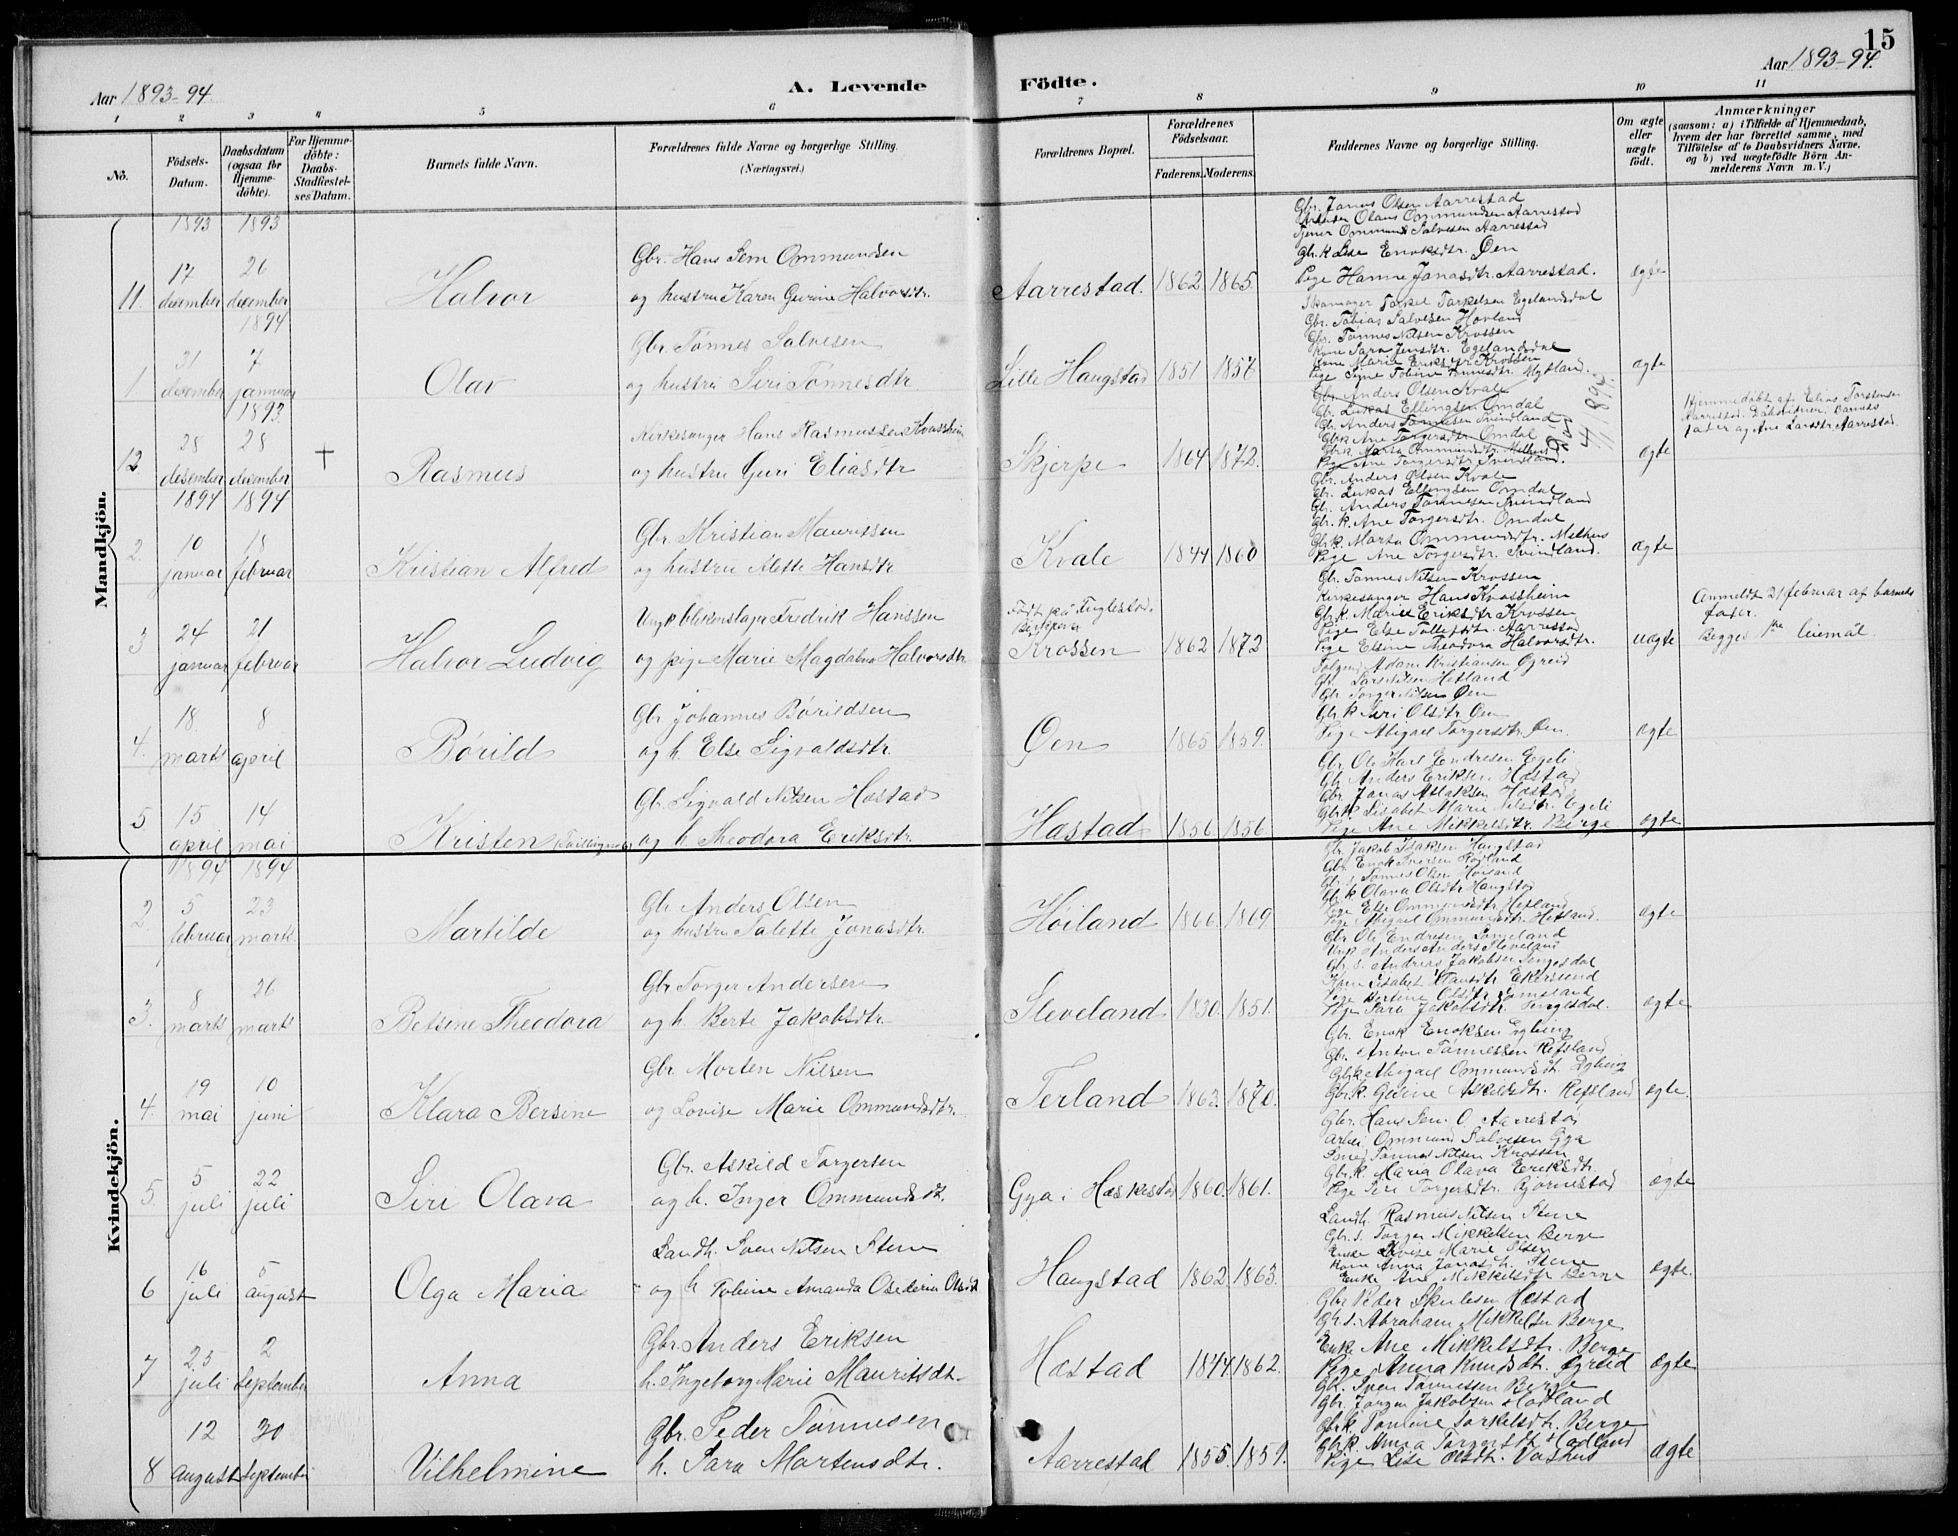 15
Aar 1893-94.
A. Levende Födte.
Aar 1893-94.
1 2 3 4 5 6 7 8 9 10 11
No.
Födsels-Datum.
Daabsdatum (ogsaa for Hjemme-döbte).
For Hjemme-döbte: Daabs-Stadfæstel-ses Datum.
Barnets fulde Navn.
Forældrenes fulde Navne og borgerlige Stilling.
(Næringsvei.)
Forældrenes Bopæl.
Forældrenes Födselsaar.
Faderens. Moderens.
Faddernes Navne og borgerlige Stilling.
Om ægte eller uægte födt.
Anmærkninger
(saasom: a) i Tilfælde af Hjemmedaab,
hvem der har forrettet samme, med
Tilföielse af to Daabsvidners Navne,
og b) ved uægtefödte Börn An-
melderens Navn m. V.)
Mandkjön.
1893 1893
11. 17 desember 26 desember
Halvor
Gbr. Hans Sem Ommundsen
og hustru Karen Gurine Halvorsdtr.
Aarrestad. 1862. 1865.
Gbr. Jonas Olsen Aarrestad
Olaus Ommundsen Aarrestad
Tjener Ommund Salvesen Aarrestad
Gbr.k Lise Enoksdtr. Øen
Pige Hanne Jonasdtr. Aarrestad.
ægte
1894
1 31 desember 7 januar
Olav
Gbr. Tönnes Salvesen
og hustru Siri Tönnesdtr
Lille Haugstad 1851 1857
Skomager Torkel Torkelsen Egelandsdal
Gbr. Tobias Salvesen Hovland
Gbr. Tönnes Nilsen Krossen
Kone Sara Jensdtr. Egelandsdal
Kone Marie Eriksdtr Krossen
Pige Sine Tobine Tönnesdtr. Mydland.
ægte
1893
12 28 desember 28 desember †
Rasmus
Kirkesanger Hans Rasmussen Kvassheim
og hustru Guri Eliasdtr
Skjerpe 1864 1872.
Gbr. Anders Olsen Kvale
Gbr. Lukas Ellingsen Omdal
Gbr. Anders Tönnesen Svindland
Gbrk Ane Torgersdtr. Omdal
Gbrk. Marta Ommundsdtr. Melhus
Pige Ane Torgersdtr. Svindland.
Död 4/1 1894.
ægte
Hjemmedöbt af Elias Torstensen
Aarrestad. Daabsvidner: barnets
fader og Ane Larsdtr Aarrestad.
1894 1894
2. 10 januar 18 februar
Kristian Alfred
Gbr. Kristian Mauritsen
og hustru Alette Hansdtr
Kvale 1844 1860
Gbr. Anders Olsen Kvale
Gbr. Lukas Ellingsen Omdal
Gbr. Anders Tönnesen Svindland
Gbr.k. Ane Torgersdtr. Omdal
Gbr.k. Marta Ommundsdtr. Melhus
Pige Ane Torgersdtr. Svindland.
ægte
3 24 januar 21 februar
Halvor Ludvig
Ungk blikkenslager Fredrik Hanssen
og pige Marie Magdalena Halvorsdtr
Födt på Fuglestad.
Krossen 1862 1872
Gbr. Tönnes Nilsen Krossen
Kirkesanger Hans Kvassheim
Gbr.k. Marie Eriksdtr Krossen
Pige Else Tollefsdtr. Aarrestad
Pige Elsine Theodora Halvorsdtr.
uægte
Anmeldt 21 februar af barnets
fader.
Begges 1ste leiemål.
4. 18. marts 8 april
Börild
Gbr Johannes Börildsen
og h. Else Sigvaldsdtr
Øen 1865 1859.
Adam Kristiansen Øgreid
Gbr. Lars Nilsen Hetland
Gbr. Torger Nilsen Øen
Gbr.k Siri Olsdtr Øen
Pige Abigael Torgersdtr. Øen.
ægte
5 15 april 14 mai
Kristen (Tvilling no 6)
Gbr. Sigvald Nilsen Hæstad
og h. Theodora Eriksdtr.
Hæstad 1856 1856
Gbr. Ole Karl Endresen Egeli
Gbr. Anders Eriksen Hæstad
Gbr Jonas Aslaksen Hæstad
Gbrk. Lisabet Marie Nilsdtr. Egeli
Pige Ane Mikkelsdtr. Berge
ægte
Kvindekjön.
1894 1894
2 5 februar 23 marts
Martilde
Gbr Anders Olsen
og hustru Talette Jonasdtr.
Höiland 1866. 1869.
Gbr. Jakob Isaksen Haugstad
Gbr. Enok Iversen
Gbr. s. Tönnes Olsen Höiland
Gbr.k Olava Olsdtr Haugstad
Pige Else Ommundsdtr Hetland
Pige Abigael Ommundsdtr Hetland.
ægte
3. 8 marts 26 marts
Betsine Theodora
Gbr Torger Andersen
og h. Berte Jakobsdtr.
Sleveland 1830. 1851.
Gbr Ole Endresen Tomeland
Ungk Anders Anders. Sleveland
Gbr. s. Andreas Jakobsen Tengesdal
Kone Lisabet Klausdtr Ekersund
Pige Olsdtr Tomeland
Pige Sara Jakobsdtr Tengesdal.
ægte
4. 19 mai 10 juni
Klara Bersine
Gbr Morten Nilsen
og Lovise Marie Ommundsdtr.
Terland 1863. 1870.
Gbr. Enok Enoksen Eigeng
Gbr. Anton Tönnessen Refsland
Gbrk Abigael Ommundsdt
Gbr.k. Gurine Askildsdtr. Refsland
ægte.
5. 5 juli 22 juli
Siri Olava
Gbr. Askild Torgersen
og h. Inger Ommundsdt.
Gya i Heskestad 1860. 1861.
Gbr. Hans Sem O. Aarrestad
Arbei. Ommund Salvesen Gya
Tönnes Nilsen Krossen
Gbr.k. Maria Olava Eriksdtr
Pige Siri Torgersdtr. Bjornestad
ægte
6 16 juli 5 august
Olga Maria
Landh. Sven Nilsen Stene
og h Tobine Amanda Osederia Olsdt
Haugstad 1862. 1863.
Landh. Rasmus Nilsen Stene
Gbr. s. Torger Mikkelsen Berge
Enke Lovise Marie Olsen
Kone Anna Jonasdtr. Stene
Enke Ane Mikkelsdtr Berge
ægte.
7 25 juli 2 September
Anna
Gbr Anders Eriksen
h. Ingeborg Marie Mauritsdt.
Hæstad 1844. 1862.
Gbr Peder Skulesen Hæstad
Gbr.s. Abraham Mikkelsen Berge
Enk. Ane Mikkelsdtr. Berge
Pige Anna Knudsdtr. Øgreid
ægte
8 12 august 30 September
Vilhelmine
Gbr. Peder Tönnesen
h. Sara Mortensdtr.
Aarrestad 1855. 1859.
Gbr. Sven Tönnessen Berge
Gbr. Jörgen Jakobsen Hodland
Gbrk Tomine Torkelsdtr. Berge
Gbr.k. Anna Torgersdtr Hodland
Pige Lise Olsdtr. Vashus
ægte